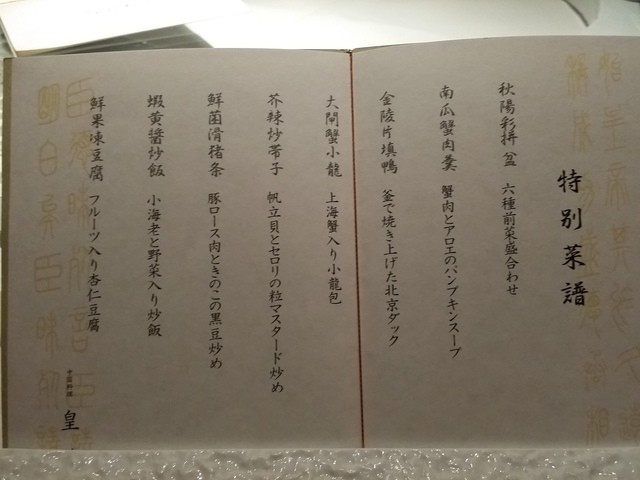 特別菜譜
秋陽彩拼盆 六種前菜盛合わせ
南瓜蟹肉羹 蟹肉とアロエのパンプキンスープ
金陵片填鴨 釜で焼き上げた北京ダック
大閘蟹小龍 上海蟹入り小龍包
芥辣炒帯子 帆立貝とセロリの粒マスタード炒め
鮮菌滑猪条 豚ロース肉ときのこの黒豆炒め
蝦黄醤炒飯 小海老と野菜入り炒飯
鮮果凍豆腐 フルーツ入り杏仁豆腐
皇